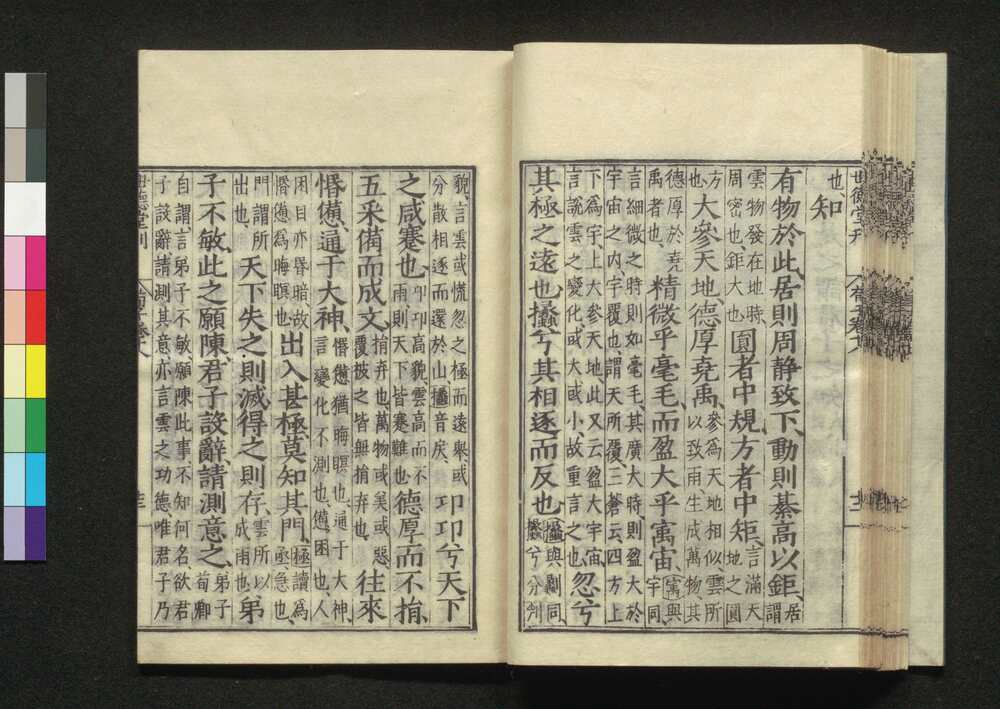 世德堂刊
也知
有物於此、居則周静致下、動則綦高以鉅、居
謂
雲物發在地時、
周密也、鉅大也、圓者中規、方者中矩、言滿天
地之圓
方
也、大參天地、德厚堯禹、參爲天地相似、雲所
以致雨生成萬物、其
德厚於堯
禹者也、精微乎毫毛、而盈大乎㝢宙、㝢與
宇同、
言細微之時則如毫毛、其廣大時、則盈大於
宇宙之内、宇覆也、謂天所覆、三蒼云、四方上
下爲宇、上大參天地、此又云盈大宇宙、
言說雲之變化、或大或小、故重言之也、忽兮
其極之遠也、攭兮其相逐而反也、攭與劙同、
攭兮分判
貌、言雲或慌忽之極而遠舉、或
分散相逐而還於山、攭音戾、卬卬兮天下
之咸蹇也、卬卬高貌、雲高而不
雨則天下皆蹇難也、德厚而不捐、
五采備而成文、捐弃也、萬物或美或惡、
覆被之皆無捐弃也、往來
惛憊、通于大神、惛憊猶晦暝也、通于大神、
言變化不測也、憊、困也、人
困目亦昏暗、故
惛憊爲晦暝也、出入甚極、莫知其門、極讀爲
亟、急也、
門謂所
出也、天下失之則滅、得之則存、雲所以
成雨也、弟
子不敏、此之願陳、君子設辭、請測意之、弟子
荀卿
自謂、言弟子不敏、願陳此事、不知何名、欲君
子設辭請測其意、亦言雲之功德、唯君子乃
世德堂刊